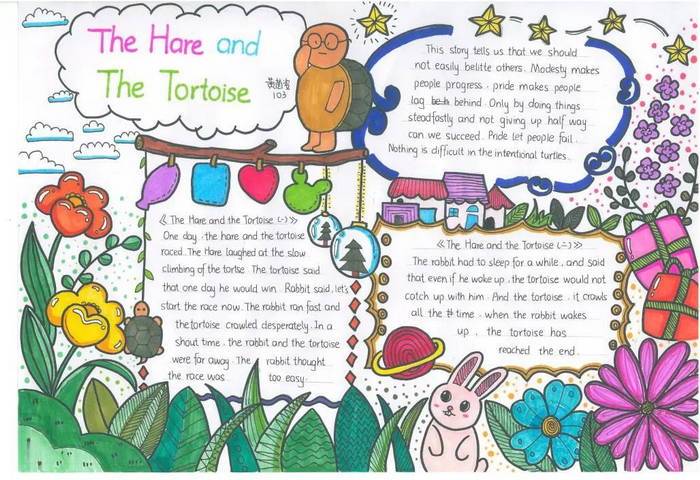 The Hare and
The Tortoise
103
《The Hare and the Tortoise (一)》
One day, the hare and the tortoise
raced. The Hare laughed at the slow
climbing of the tortse. The tortoise said
that one day he would win. Rabbit said, let's
start the race now. The rabbit ran fast and
the tortoise crawled desperately. In a
shout time, the rabbit and the tortoise
were far away. The rabbit thought
the race was too easy.
This story tells us that we should
not easily belitte others. Modesty makes
people progress, pride makes people
lag behind. Only by doing things
steadfastly and not giving up half way
can we succeed. Pride let people fail.
Nothing is difficult in the intentional turtles.
《The Hare and the Tortoise (二)》
The rabbit had to sleep for a while, and said
that even if he woke up, the tortoise would not
catch up with him. And the tortoise, it crawls
all the time, when the rabbit wakes
up, the tortoise has
reached the end.